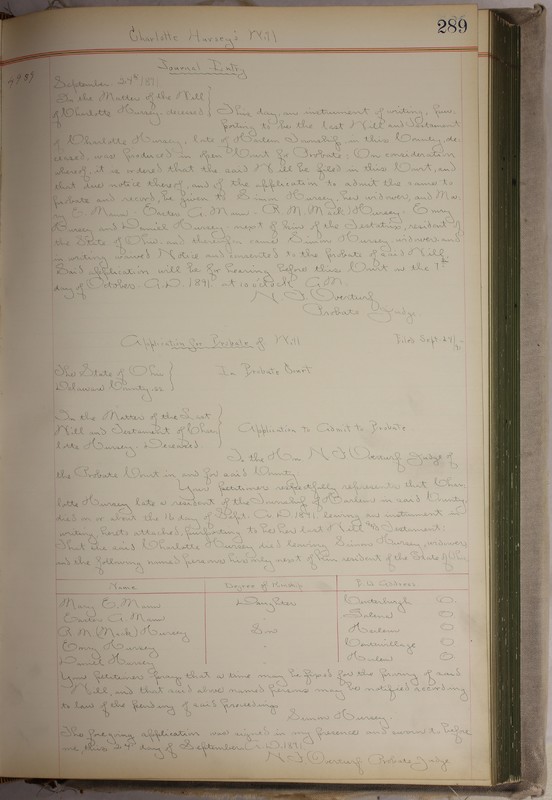 289
Charlotte Hursey's Will
Journal Entry
September 24th 1891
In the Matter of the Will
of Charlotte Hursey deceased
This day, an instrument of writing, pur-
porting to be the last Will and Testament
of Charlotte Hursey, late of Harlem Township in this County, de-
ceased, was produced in open Court for Probate. On consideration
thereof, it is ordered that the said Will be filed in this Court, and
that due notice thereof, and of the application to admit the same to
probate and record, be given to Simon Hursey, her widower, and Ma-
ry E. Mann A. Mann R. M. (Mack) Hursey
Hursey and Daniel Hursey, next of kin of the Testatrix, resident of
the State of Ohio, and thereupon came Simon Hursey, widower and
in writing waived Notice and consented to the probate of said Will
Said application will be for hearing before this Court on the 1st
day of October A.D. 1891 at 10 o'clock A.M.
N. F. Overturf
Probate Judge
Application for Probate of Will
Filed Sept. 24/91
The State of Ohio
Delaware County ss
In Probate Court
In the Matter of the Last
Will and Testament of Char-
lotte Hursey. Deceased
Application to Admit to Probate
To the Hon. N. F. Overturf Judge of
the Probate Court in and for said County.
Your petitioner respectfully represents that Char-
lotte Hursey late a resident of the Township of Harlem in said County,
died on or about the 16 day of Sept. A.D. 1891, leaving an instrument in
writing, hereto attached, purporting to be her last Will and Testament;
That the said Charlotte Hursey died leaving Simon Hursey, widower,
and the following named persons her only next of kin resident of the State of Ohio
Name Degree of Kinship P.O. Address
Mary E. Mann Daughter Centerburgh O
A. Mann " Galena O
R. M. (Mack) Hursey Son Harlem O
Hursey " Centervillage O
Daniel Hursey " Harlem O
Your petitioner prays that a time may be fixed for the proving of said
Will, and that said above named persons may be notified according
to law of the pending of said proceedings.
Simon Hursey.
The foregoing application was signed in my presence and sworn to before
me, this 24 day of September A.D. 1891
N. F. Overturf Probate Judge